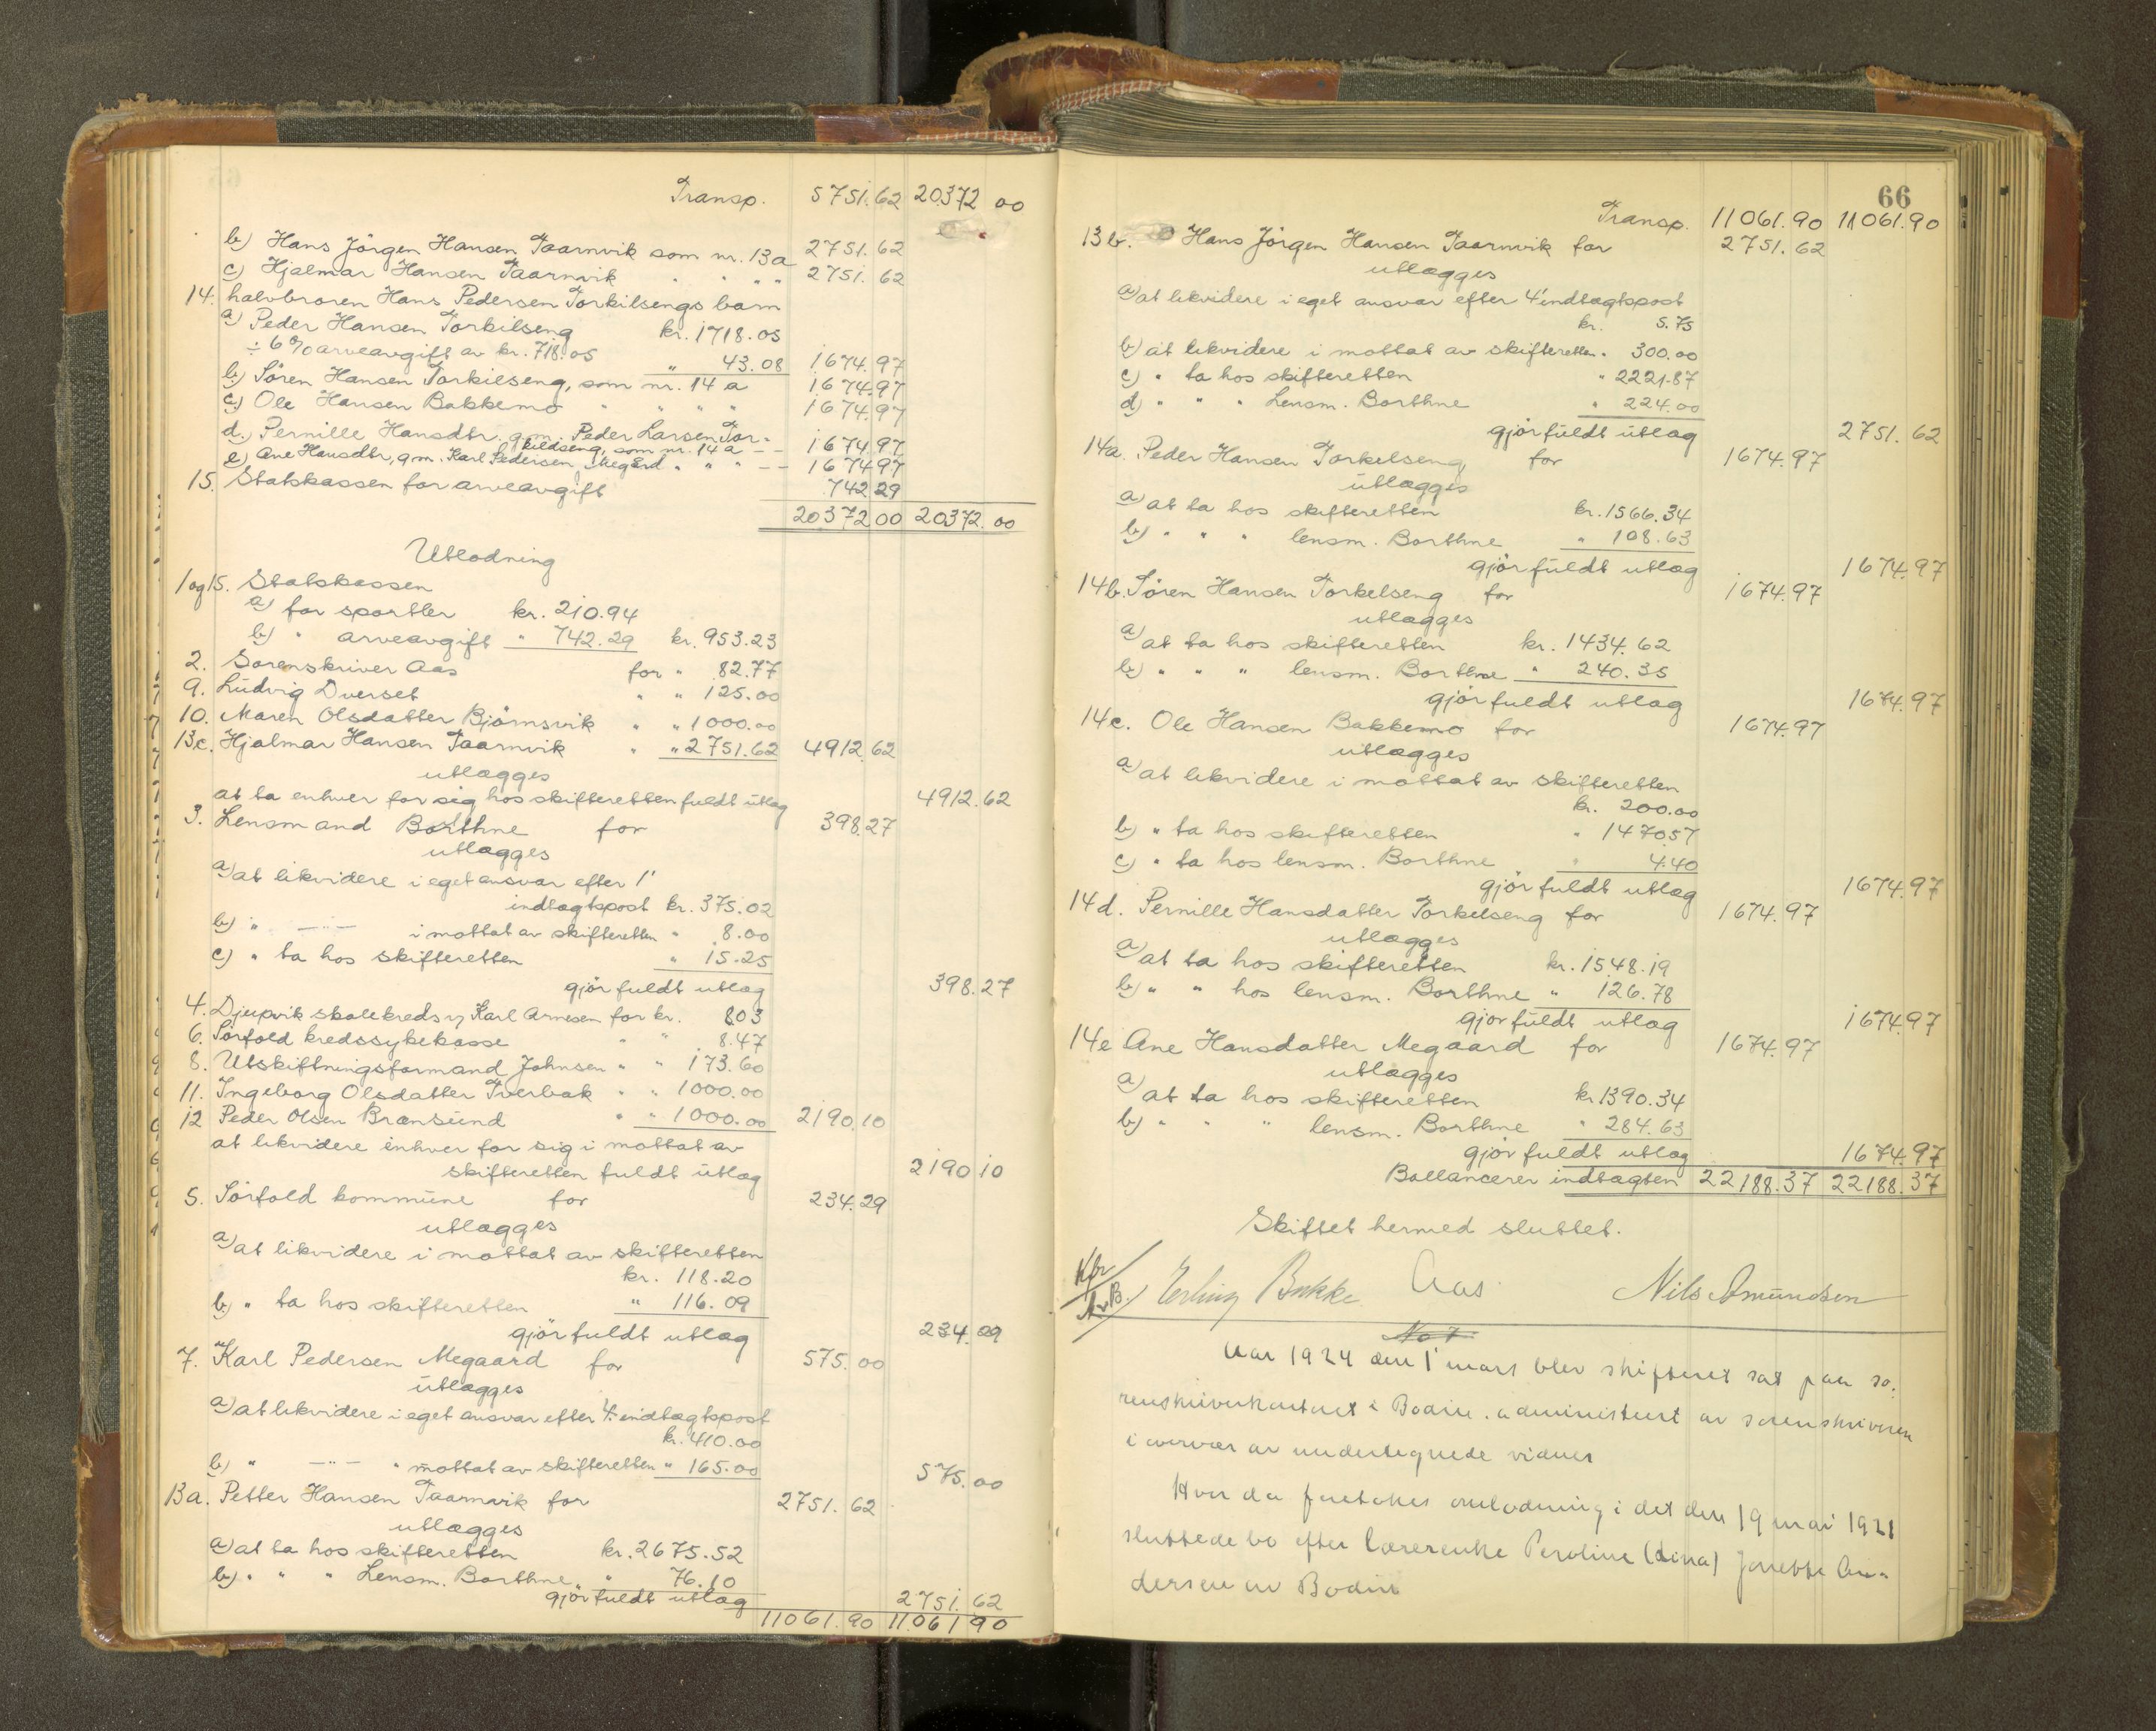 Transp. 5751.62 20372 00
b) Hans Jörgen Hansen Taarnvik som nr. 13a 2751.62
c) Hjalmar Hansen Taarnvik " " " 2751.62
14. halvbroren Hans Pedersen Torkilsengs barn
a) Peder Hansen Torkilseng kr. 1718.05
÷ 6% arveavgift av kr. 718.05 " 43.08 1674.97
b) Sören Hansen Torkilseng, som nr. 14 a 1674.97
c) Ole Hansen Bakkemo " " " " 1674.97
d.) Pernille Hansdtr. g.m. Peder Larsen Tor-
kildseng, som nr. 14 a - - 1674.97
e) Ane Hansdtr, g.m. Karl Pedersen Megård " " " - - 1674.97
15. Statskassen for arveavgift 742 29
20372 00 20372.00
Utlodning
1 og 15. Statskassen
a) for sportler kr. 210.94
b) " arveavgift " 742.29 kr. 953.23
2. Sorenskriver Aas for " 82.77
9. Ludvig Dverset " " 125.00
10. Maren Olsdatter Björnsvik " " 1000.00
13c. Hjalmar Hansen Taarnvik " " 2751.62 4912 62
utlægges
at ta enhver for sig hos skifteretten fuldt utlæg 4912.62
3. Lensmand Borthne for 398.27
utlægges
a) at likvidere i eget ansvar efter 1'
indtægtspost kr. 375.02
b) " —"— i mottat av skifteretten " 8.00
c) " ta hos skifteretten " 15.25
gjör fuldt utlæg 398.27
4. Djupvik skolekreds v/ Karl Arnesen for kr. 8.03
6. Sörfold kredssykekasse " " 8.47
8. Utskiftningsformand Johnsen " " 173.60
11. Ingeborg Olsdatter Tverbak " " 1000.00
12 Peder Olsen Brænsund " " 1000.00 2190.10
at likvidere enhver for sig i mottat av
skifteretten fuldt utlæg 2190 10
5. Sörfold kommune for 234.29
utlægges
a) at likvidere i mottat av skifteretten
kr. 118.20
b) " ta hos skifteretten " 116.09
gjör fuldt utlæg 234.29
7. Karl Pedersen Megaard for 575.00
utlægges
a) at likvidere i eget ansvar efter 4. indtægtspost
kr. 410.00
b) " —"— " mottat av skifteretten " 165.00
575.00
13a. Petter Hansen Taarnvik for 2751.62
utlægges
a) at ta hos skifteretten kr. 2675.52
b) " " " Lensm. Borthne " 76.10
gjör fuldt utlæg 2751.62
11061.90 11061 90
66
Transp. 11061.90 11061.90
13b. Hans Jörgen Hansen Taarnvik for 2751.62
utlægges
a) at likvidere i eget ansvar efter 4' indtægtspost
kr. 5.75
b) at likvidere i mottat av skifteretten " 300.00
c) " ta hos skifteretten " 2221.87
d) " " " Lensm. Borthne " 224.00
gjör fuldt utlæg 2751.62
14a. Peder Hansen Torkelseng for 1674.97
utlægges
a) at ta hos skifteretten kr. 1566.34
b) " " " lensm. Borthne " 108.63
gjör fuldt utlæg 1674.97
14b. Sören Hansen Torkelseng for 1674.97
utlægges
a) at ta hos skifteretten kr. 1434.62
b) " " " lensm. Borthne " 240.35
gjör fuldt utlæg 1674.97
14c. Ole Hansen Bakkemo for 1674.97
utlægges
a) at likvidere i mottat av skifteretten
kr. 200.00
b) " ta hos skifteretten " 1470.57
c) " ta hos lensm. Borthne " 4.40
gjör fuldt utlæg 1674.97
14d. Pernille Hansdatter Torkelseng for 1674.97
utlægges
a) at ta hos skifteretten kr. 1548.19
b) " " hos lensm. Borthne " 126.78
gjör fuldt utlæg 1674.97
14e Ane Hansdatter Megaard for 1674.97
utlægges
a) at ta hos skifteretten kr 1390.34
b) " " " lensm. Borthne " 284.63
gjör fuldt utlæg 1674.97
Ballancerer indtægten 22188.37 22188.37
Skiftet hermed sluttet.
Erling Bakke Aas Nils Amundsen
No 7.
Aar 1924 den 1' mars blev skifteret sat paa so-
renskriverkontoret i Bodin. administrert av sorenskriveren
i overvær av undertegnede vidner
Hvor da foretokes omlodning i det den 19 mai 1921
sluttede bo efter lærerenke Peroline (Lina) Jonette An-
dersen av Bodin